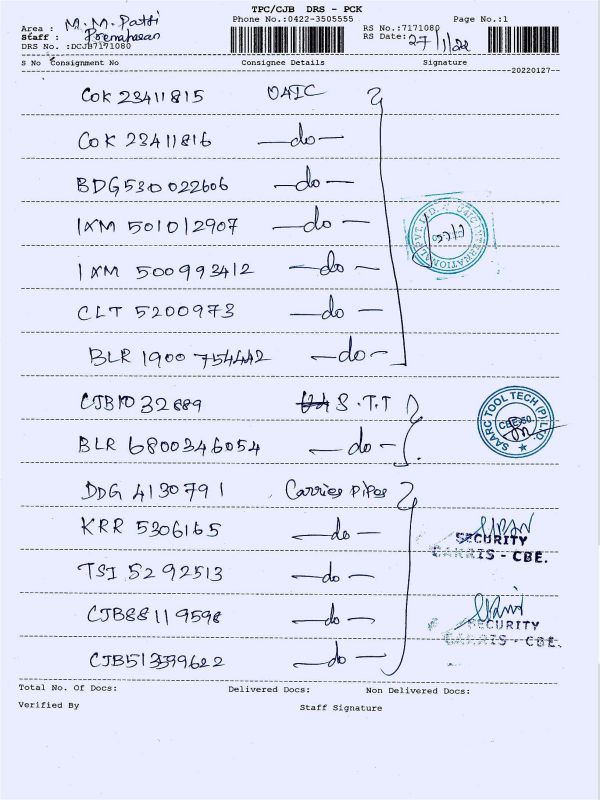 TPC/CJB DRS - PCK
Area : M.M. Patti Phone No.:0422-3505555 RS No.:7171080 Page No.:1
Staff : RS Date: 27/1/22
DRS No. :DCJB7171080
S No Consignment No Consignee Details Signature
20220127
COK 23411815 OAIC
COK 23411816 —do—
BDG530022606 —do—
IXM 501012907 —do—
IXM 500993412 —do—
CLT 5200973 —do—
BLR 1900 754442 —do—
CJB1032889 S.T.T
BLR 6800346054 —do—
SAARC TOOL TECH (P) LTD.
CBE-50
DDG 4130791 Carries Pipes
KRR 5306165 —do—
SECURITY
CARRIS - CBE.
TSI 5292513 —do—
CJB88119598 —do—
SECURITY
CARRIS - CBE.
CJB513599622 —do—
Total No. Of Docs: Delivered Docs: Non Delivered Docs:
Verified By Staff Signature